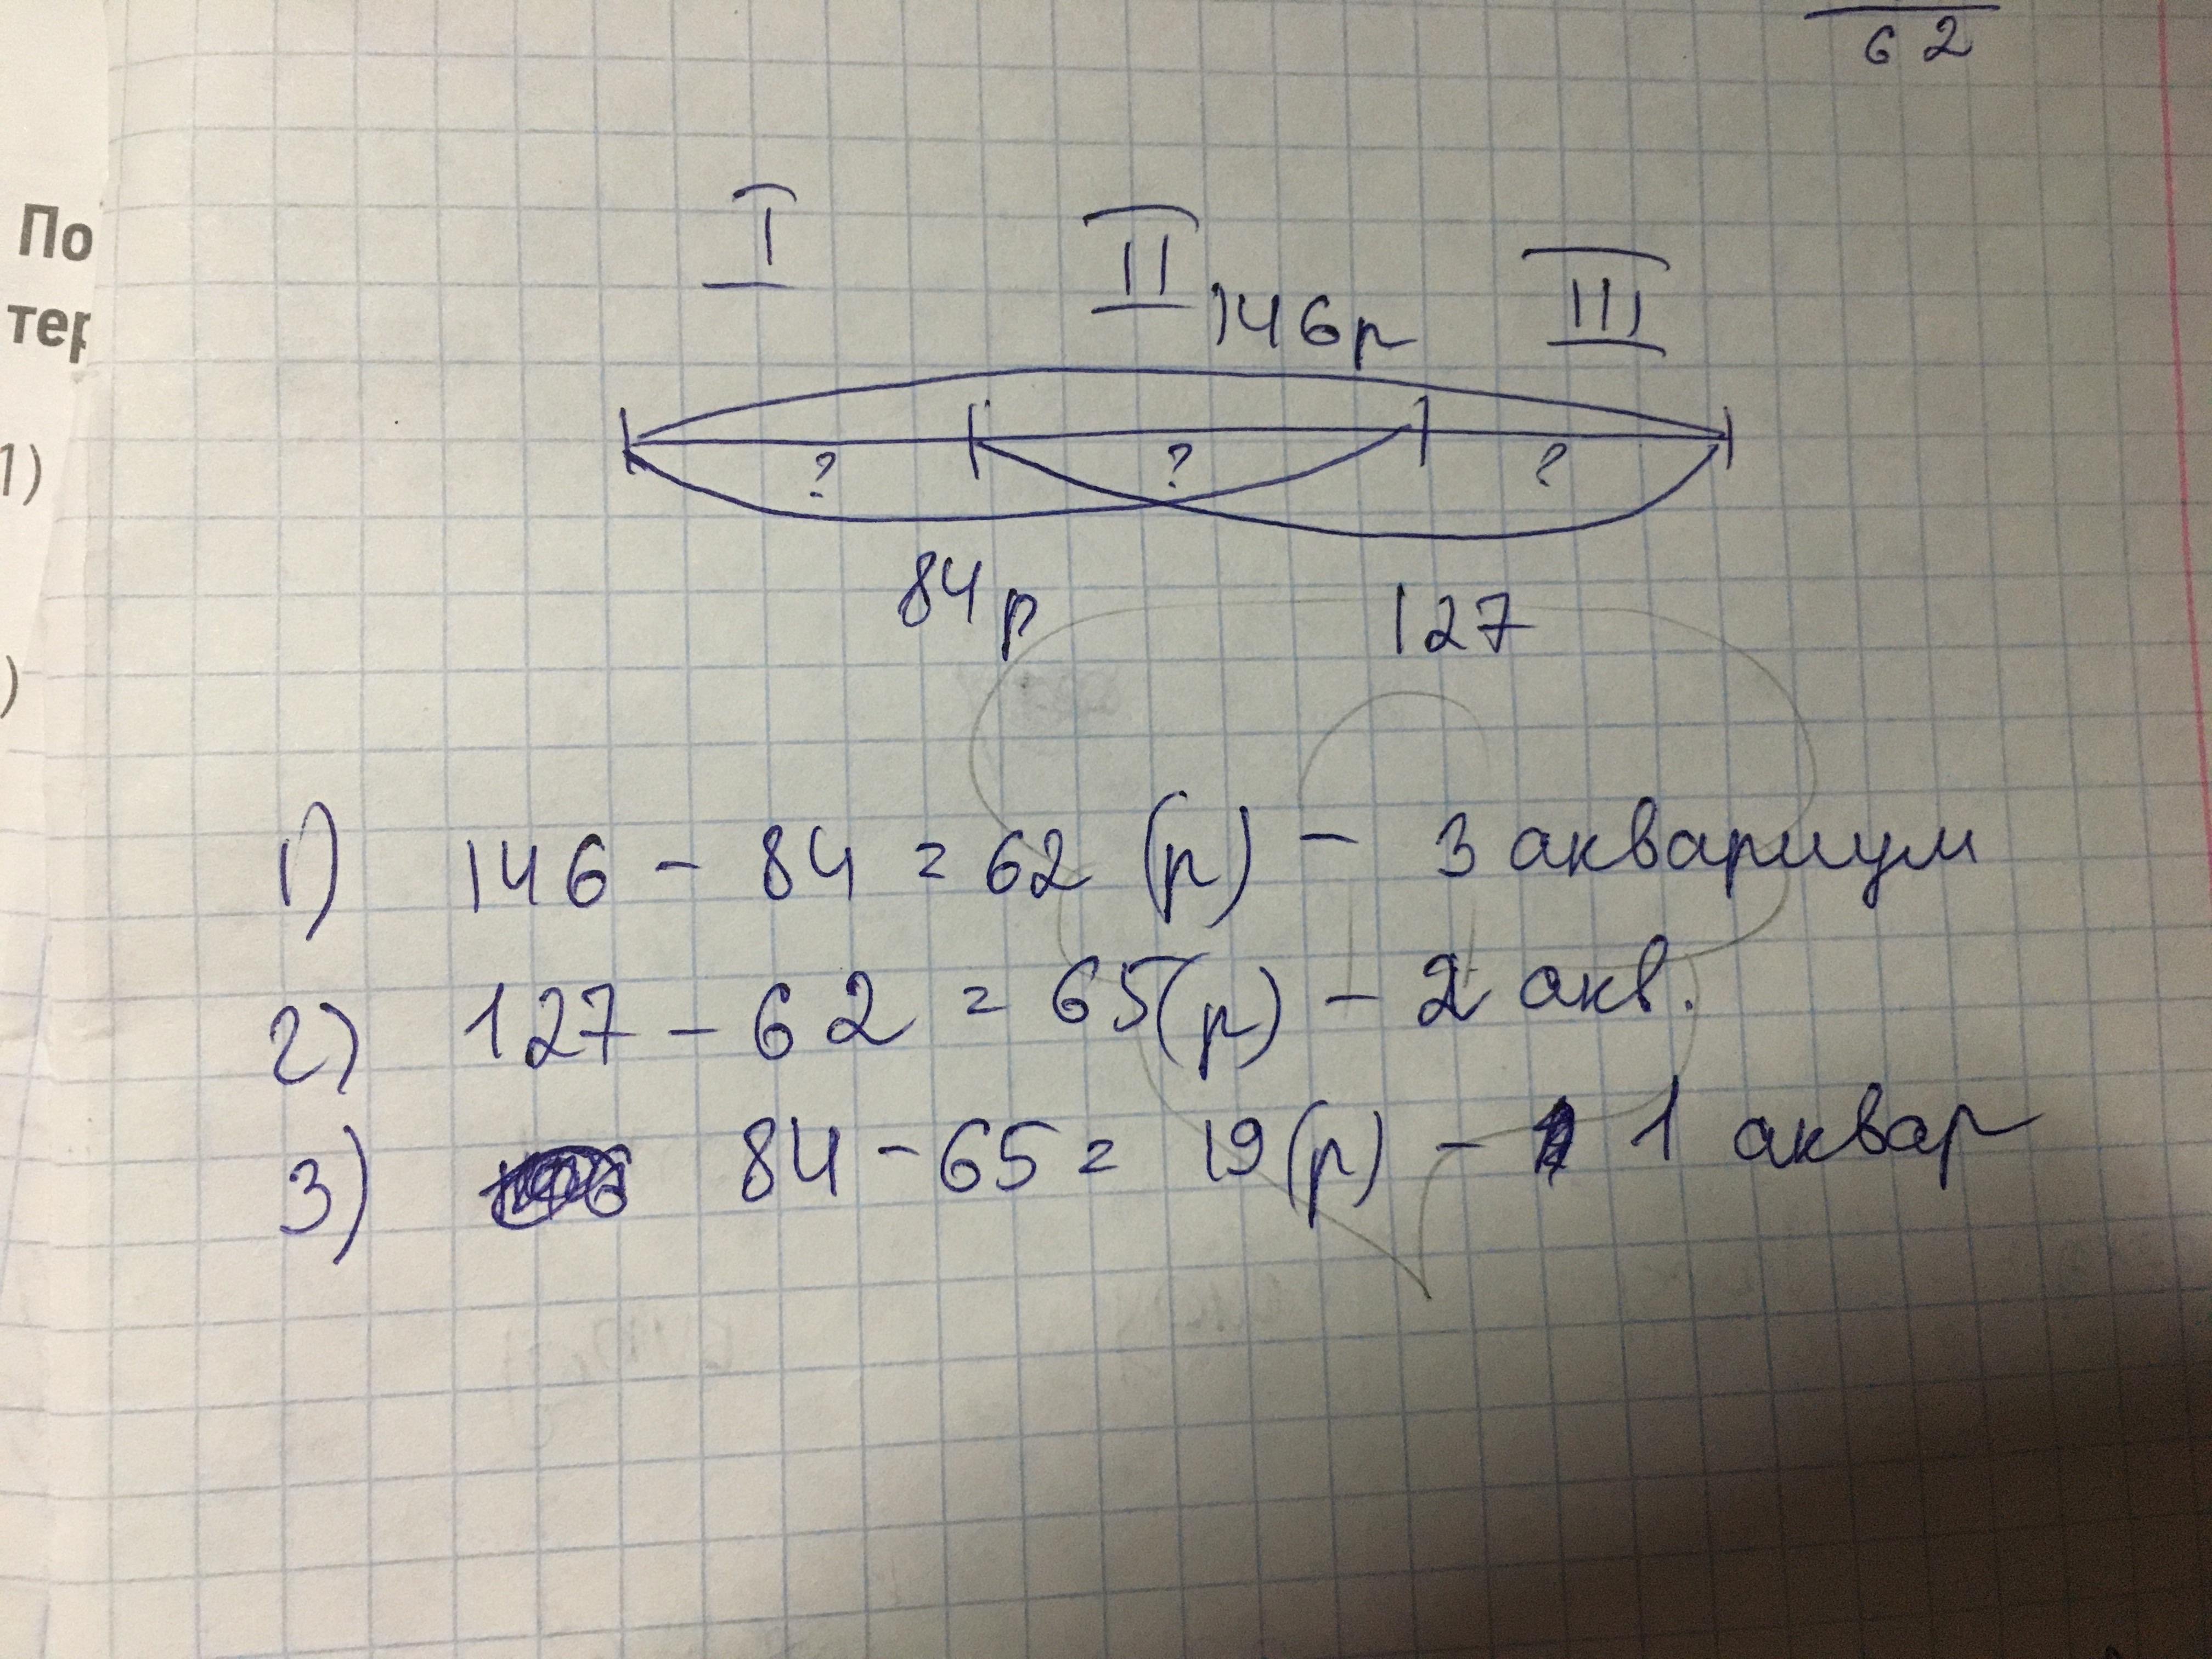 62
По
тер
I II III
146р
? ? ?
84р 127
1)
)
1) 146 - 84 = 62 (р) - 3 аквариум
2) 127 - 62 = 65(р) - 2 акв.
3) 84 - 65 = 19(р) - 1 аквар